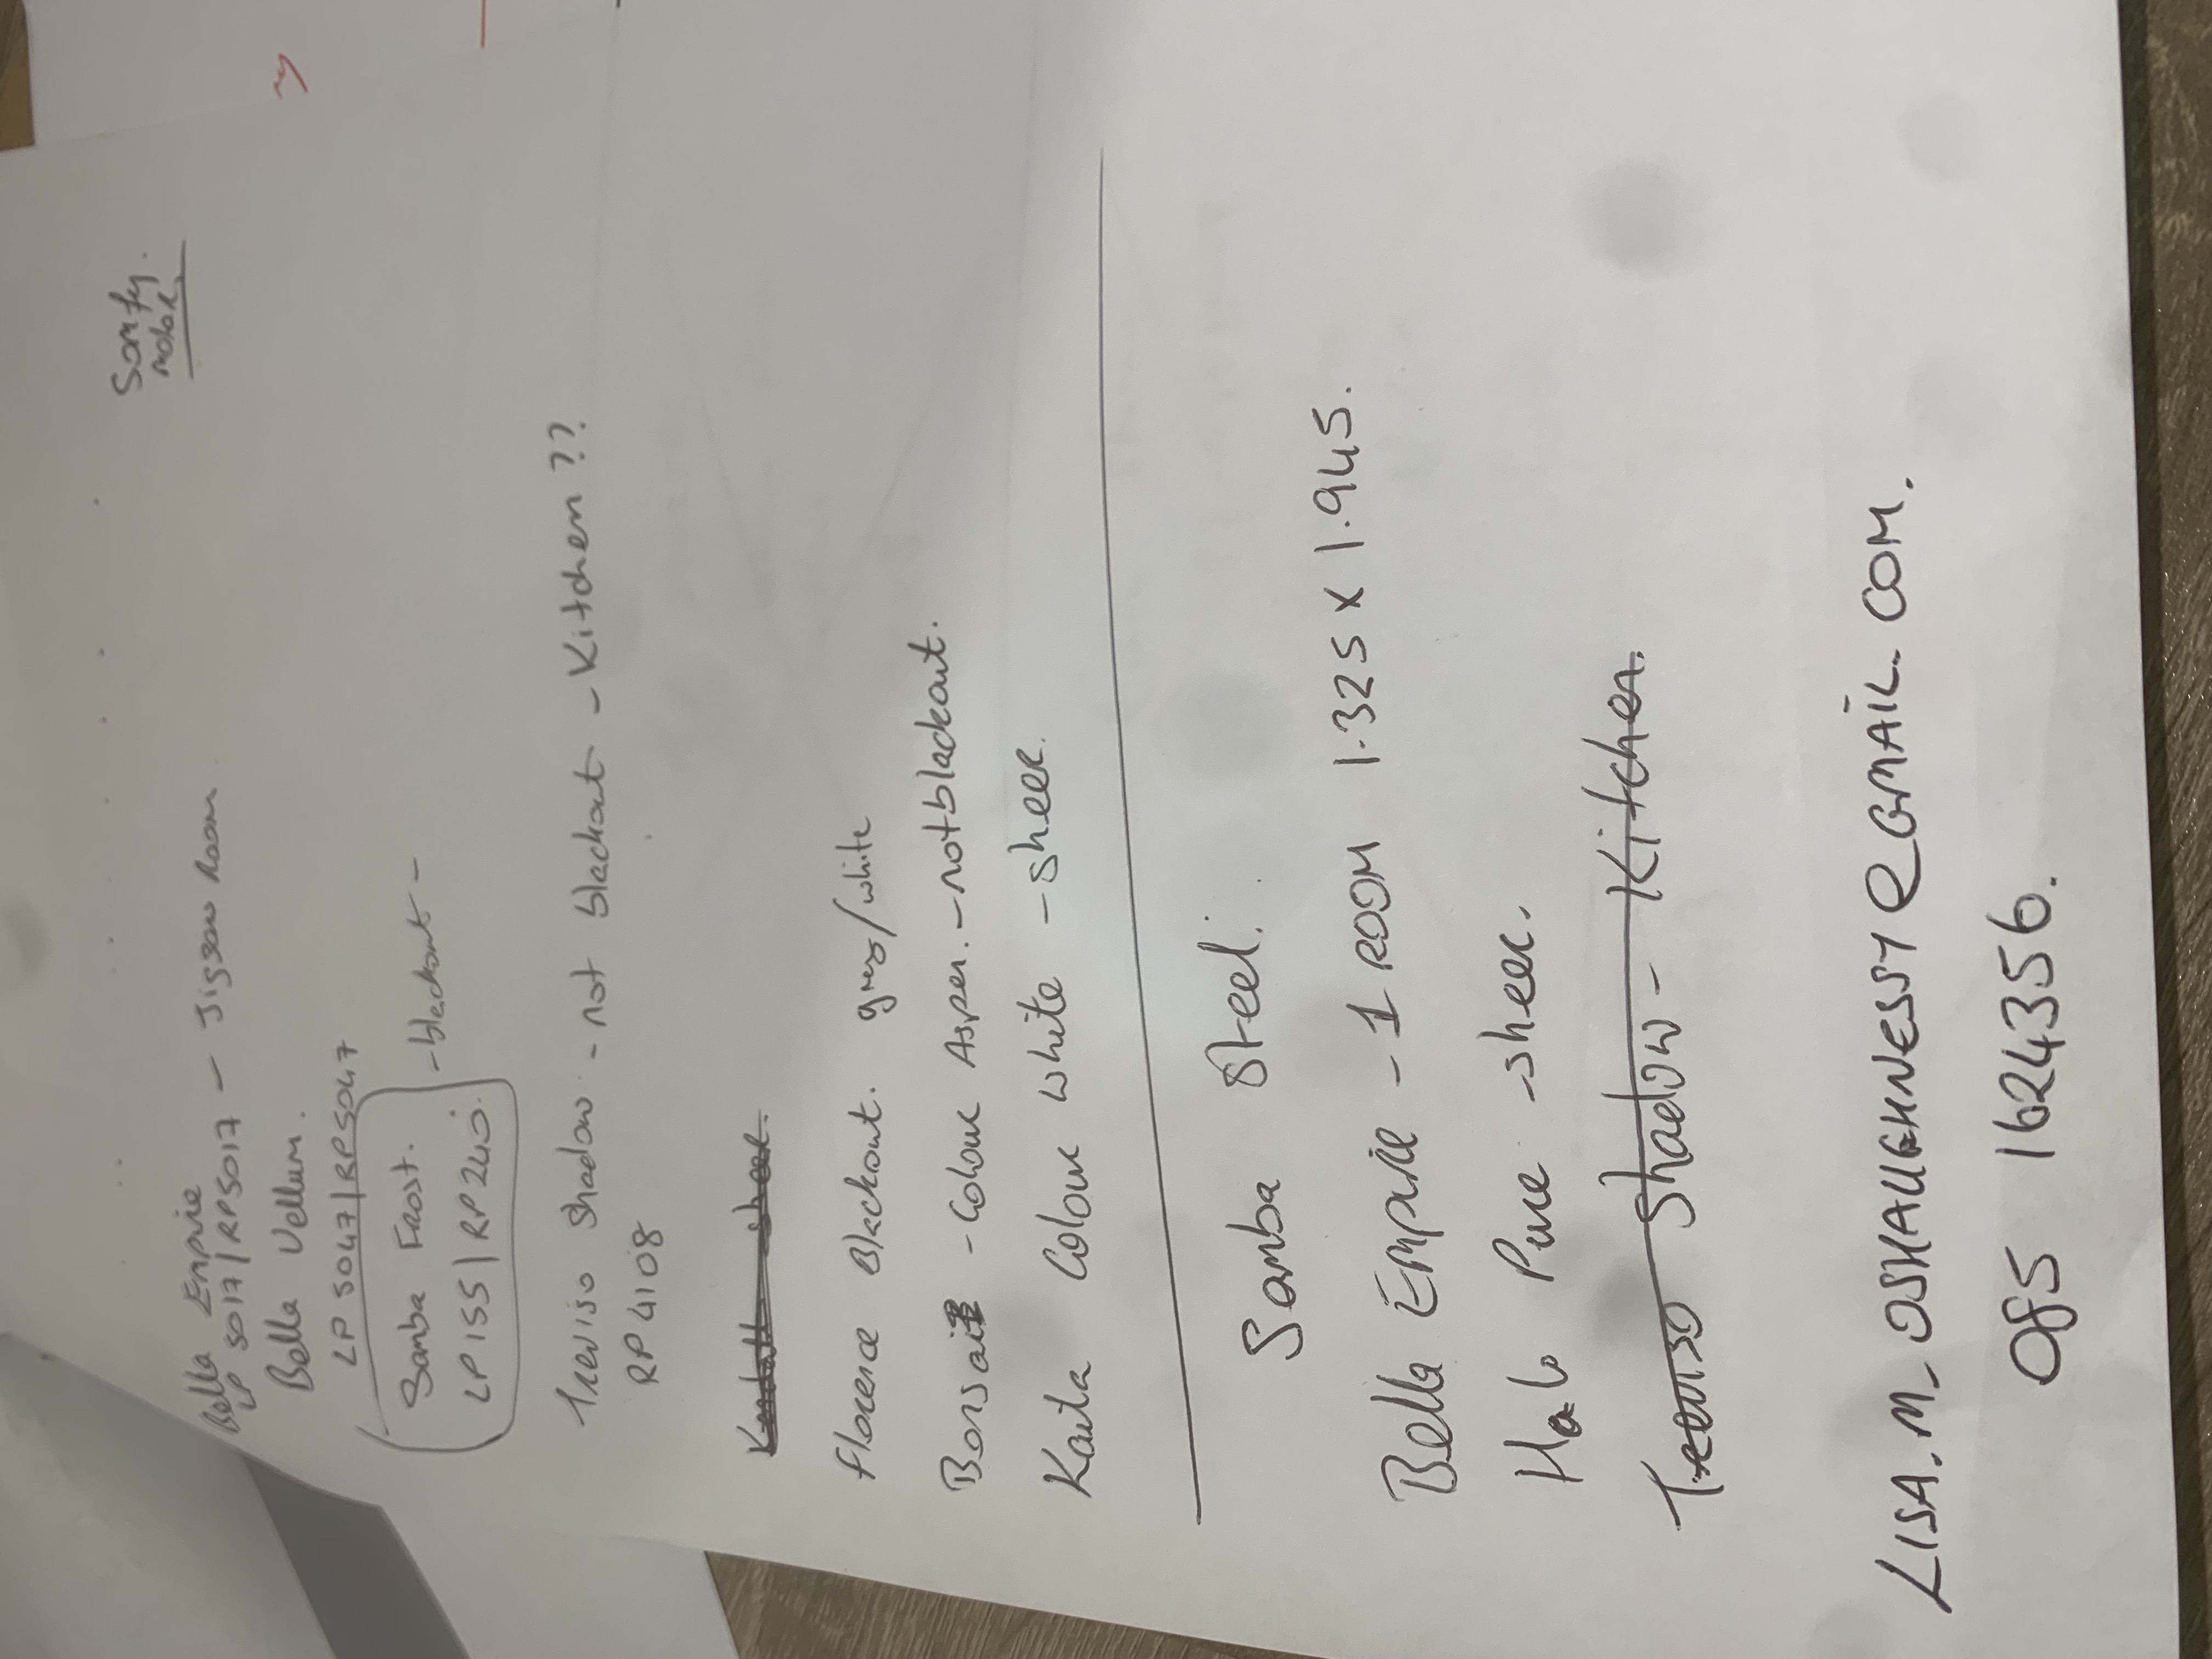 Somfy.
motor
Bella Empire
LP 5017/RP5017 - Jigsaw Room
Bella Vellum.
LP 5047/RP5047
Samba Frost. - blackout -
LP155/RP240.
Treviso Shadow - not blackout - Kitchen??
RP4108
Florence Blackout. grey/white
Bonsai - Colour Aspen. - not blackout.
Kaita Colour white - sheer.
Samba Steel.
Bella Empire - 1 ROOM 1.325 x 1.945.
Halo Pure - sheer.
Treviso Shadow - Kitchen.
LISA.M.OSHAUGHNESSY@GMAIL.COM.
085 1624356.